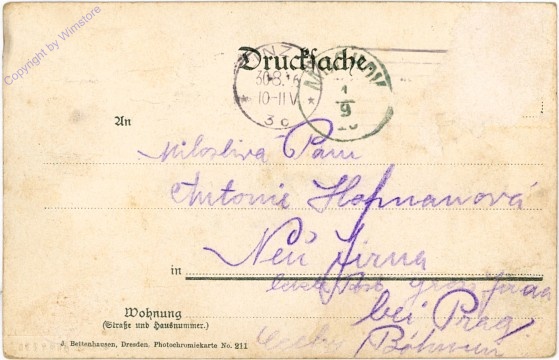 Copyright by Wimstore
Drucksache
30.8.16
10-11V.
* 3c *
1
9
An
Milostivá Paní
Antonie Hofmanová
Neu
in
letzte Post
bei Prag
Böhmen
Wohnung
(Straße und Hausnummer.)
J. Bettenhausen, Dresden. Photochromiekarte No. 211